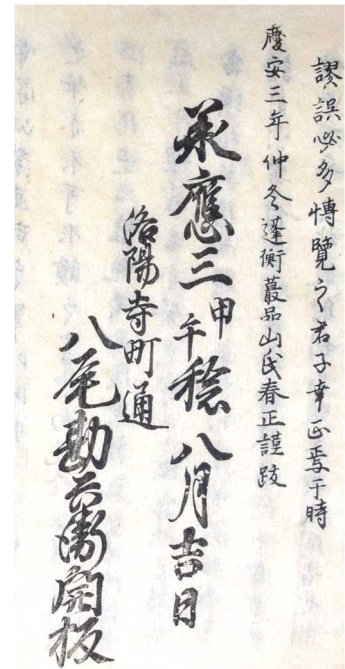 謬誤必多博覽之君子幸正焉于時
慶安三年仲冬蓬衡蕞品山氏春正謹跋
承應三甲午稔八月吉日
洛陽寺町通
八尾勘兵衞開板